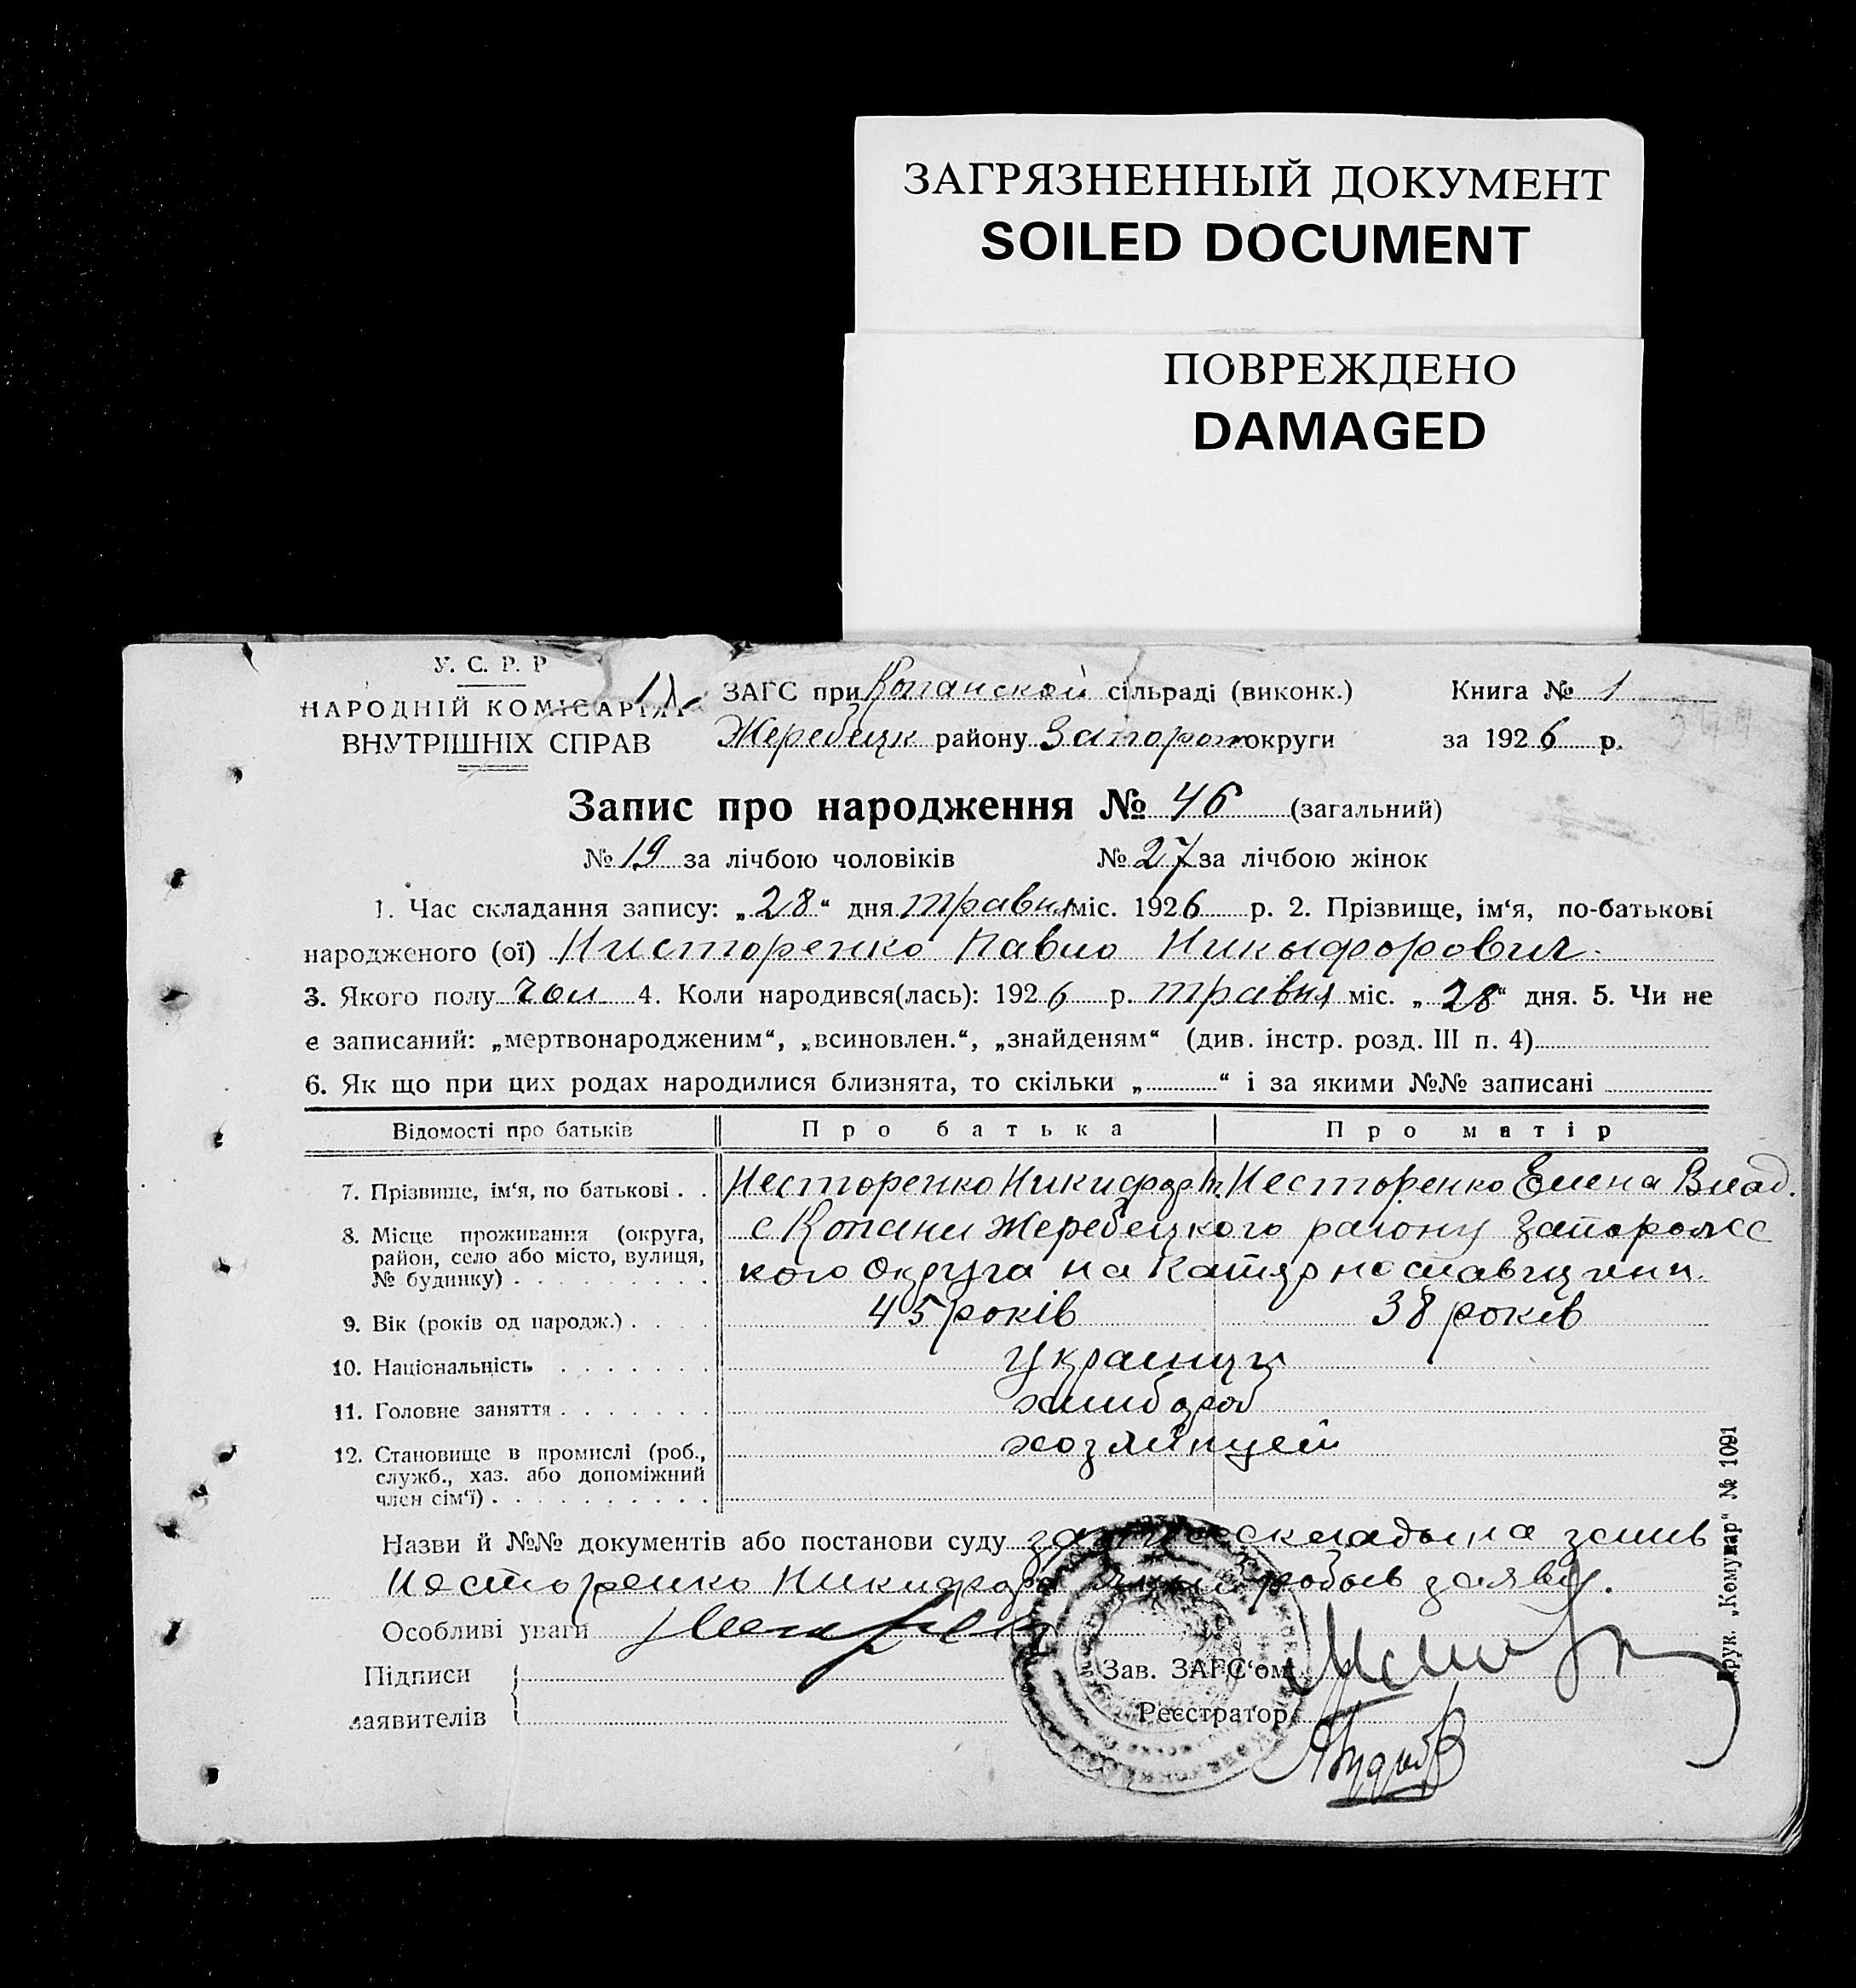 ЗАГРЯЗНЕННЫЙ ДОКУМЕНТ
SOILED DOCUMENT
ПОВРЕЖДЕНО
DAMAGED
У. С. Р. Р
НАРОДНІЙ КОМІСАРІЯТ
ВНУТРІШНІХ СПРАВ
ЗАГС при Копанской сільраді (виконк.) Книга № 1
Жеребецк району Запорож округи за 1926 р.
Запис про народження № 46 (загальний)
№ 19 за лічбою чоловіків № 27 за лічбою жінок
1. Час складання запису: „28“ дня травня міс. 1926 р. 2. Прізвище, ім‘я, по-батькові
народженого (ої) Нисторенко Павло Никыфорович
3. Якого полу чол. 4. Коли народився(лась): 1926 р. травня міс. „28“ дня. 5. Чи не
є записаний: „мертвонародженим“, „всиновлен.“, „знайденям“ (див. інстр. розд. III п. 4)
6. Як що при цих родах народилися близнята, то скільки „ “ і за якими №№ записані
Відомості про батьків Про батька Про матір
7. Прізвище, ім‘я, по батькові . . Несторенко Никифор Несторенко Елена Влад.
8. Місце проживання (округа, с Копани Жеребецкого району Запорожс
район, село або місто, вулиця,
№ будинку) . кого Округа на
9. Вік (років од народж.) . . . . 45 років 38 років
10. Національність . . . . . . . Украинци
11. Головне заняття . . . . . . . хлибороб
12. Становище в промислі (роб.,
служб., хаз. або допоміжний
член сім‘ї) .
Назви й №№ документів або постанови суду
Несторенко Никифора робыв заяву.
Особливі уваги
Підписи
заявителів
Зав. ЗАГС‘ом
Реєстратор
Друк. „Комунар“ № 1091